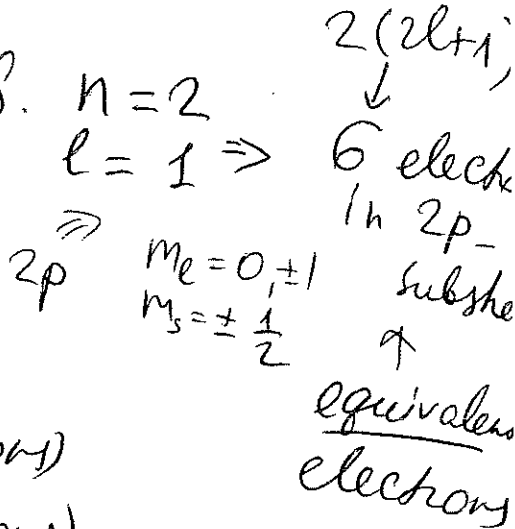 2(2l+1)
n = 2
l = 1 ⇒ 6 elect
in 2p-
subshe
⇒
2p
m_l = 0, ±1
m_s = ± 1/2
↑
equivalen
electrons